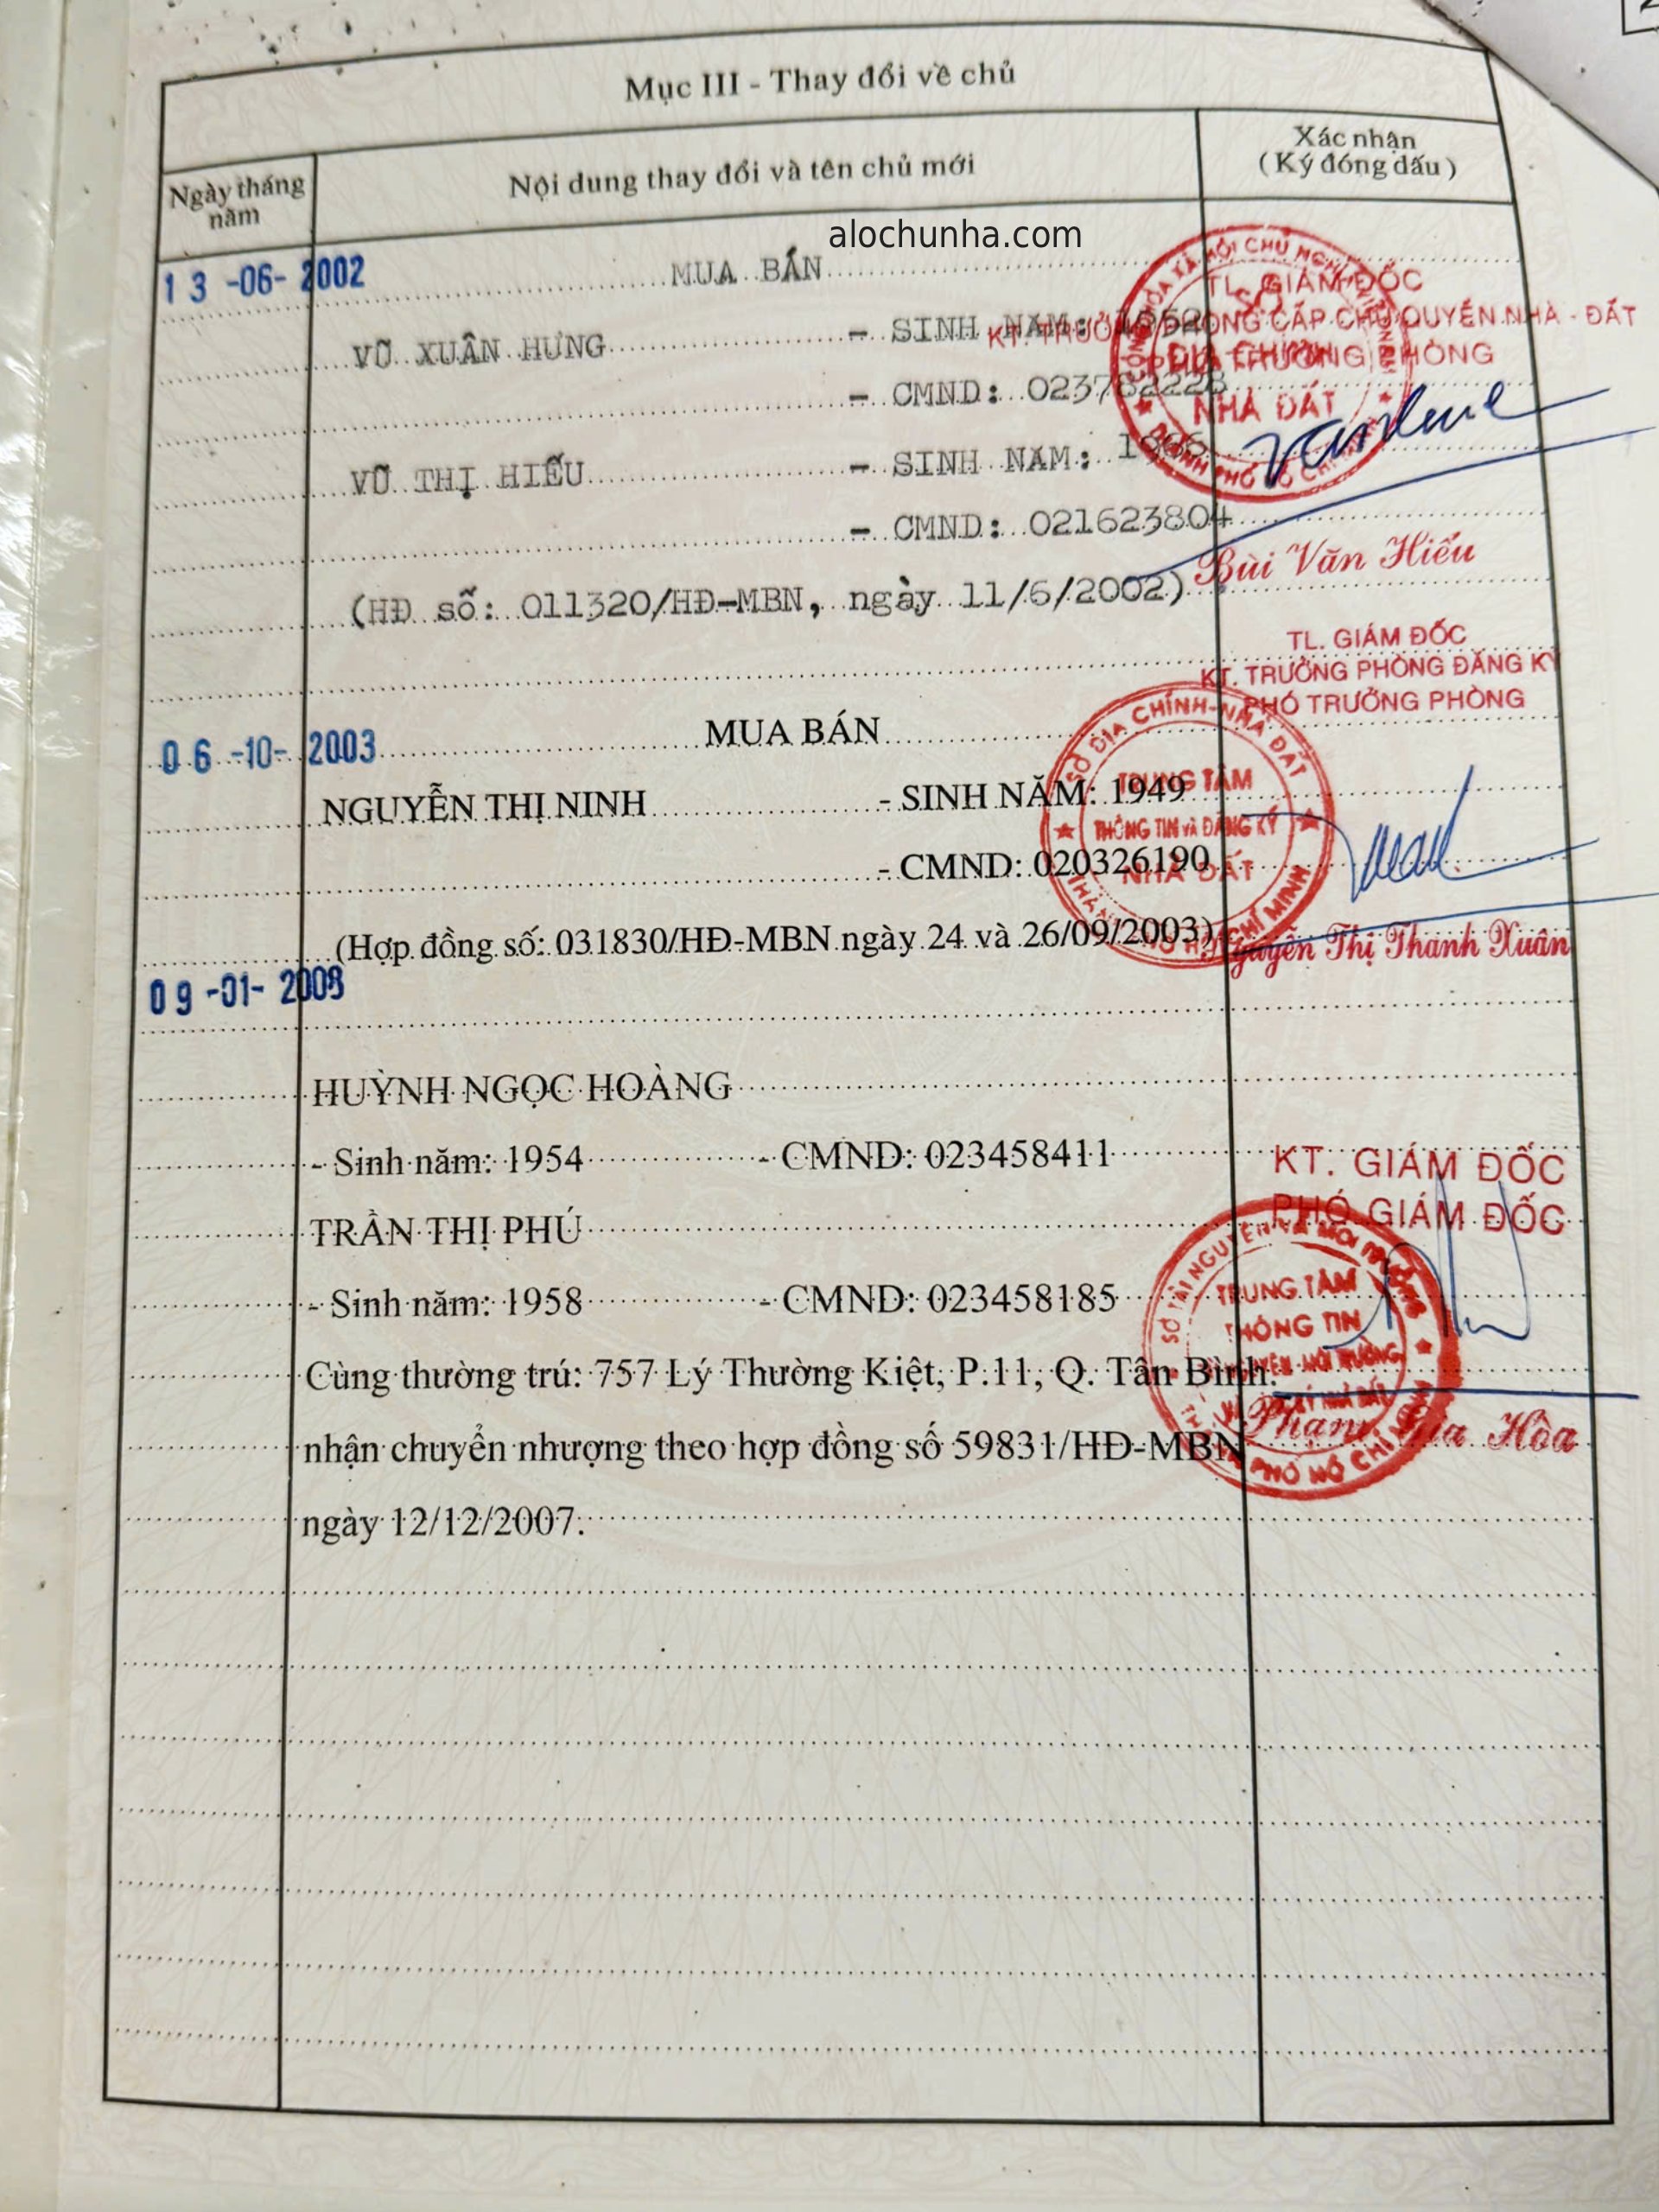 Mục III - Thay đổi về chủ
Ngày tháng năm
Nội dung thay đổi và tên chủ mới
Xác nhận
( Ký đóng dấu )
alochunha.com
13 -06- 2002
MUA BÁN
TL. GIÁM ĐỐC
KT. TRƯỞNG PHÒNG CẤP CHỦ QUYỀN NHÀ - ĐẤT
PHÓ TRƯỞNG PHÒNG
NHÀ ĐẤT
VŨ XUÂN HƯNG - SINH NĂM:
- CMND: 023782228
VŨ THỊ HIẾU - SINH NĂM: 1966
- CMND: 021623804
(HĐ số: 011320/HĐ-MBN, ngày 11/6/2002)
Bùi Văn Hiếu
TL. GIÁM ĐỐC
KT. TRƯỞNG PHÒNG ĐĂNG KÝ
PHÓ TRƯỞNG PHÒNG
06 -10- 2003
MUA BÁN
SỞ ĐỊA CHÍNH-NHÀ ĐẤT
TRUNG TÂM
THÔNG TIN VÀ ĐĂNG KÝ
NHÀ ĐẤT
NGUYỄN THỊ NINH - SINH NĂM: 1949
- CMND: 020326190
(Hợp đồng số: 031830/HĐ-MBN ngày 24 và 26/09/2003)
Nguyễn Thị Thanh Xuân
09 -01- 2008
HUỲNH NGỌC HOÀNG
- Sinh năm: 1954 - CMND: 023458411
KT. GIÁM ĐỐC
PHÓ GIÁM ĐỐC
TRẦN THỊ PHÚ
- Sinh năm: 1958 - CMND: 023458185
TRUNG TÂM
THÔNG TIN
Cùng thường trú: 757 Lý Thường Kiệt, P.11, Q. Tân Bình.
nhận chuyển nhượng theo hợp đồng số 59831/HĐ-MBN
Phạm Gia Hòa
ngày 12/12/2007.